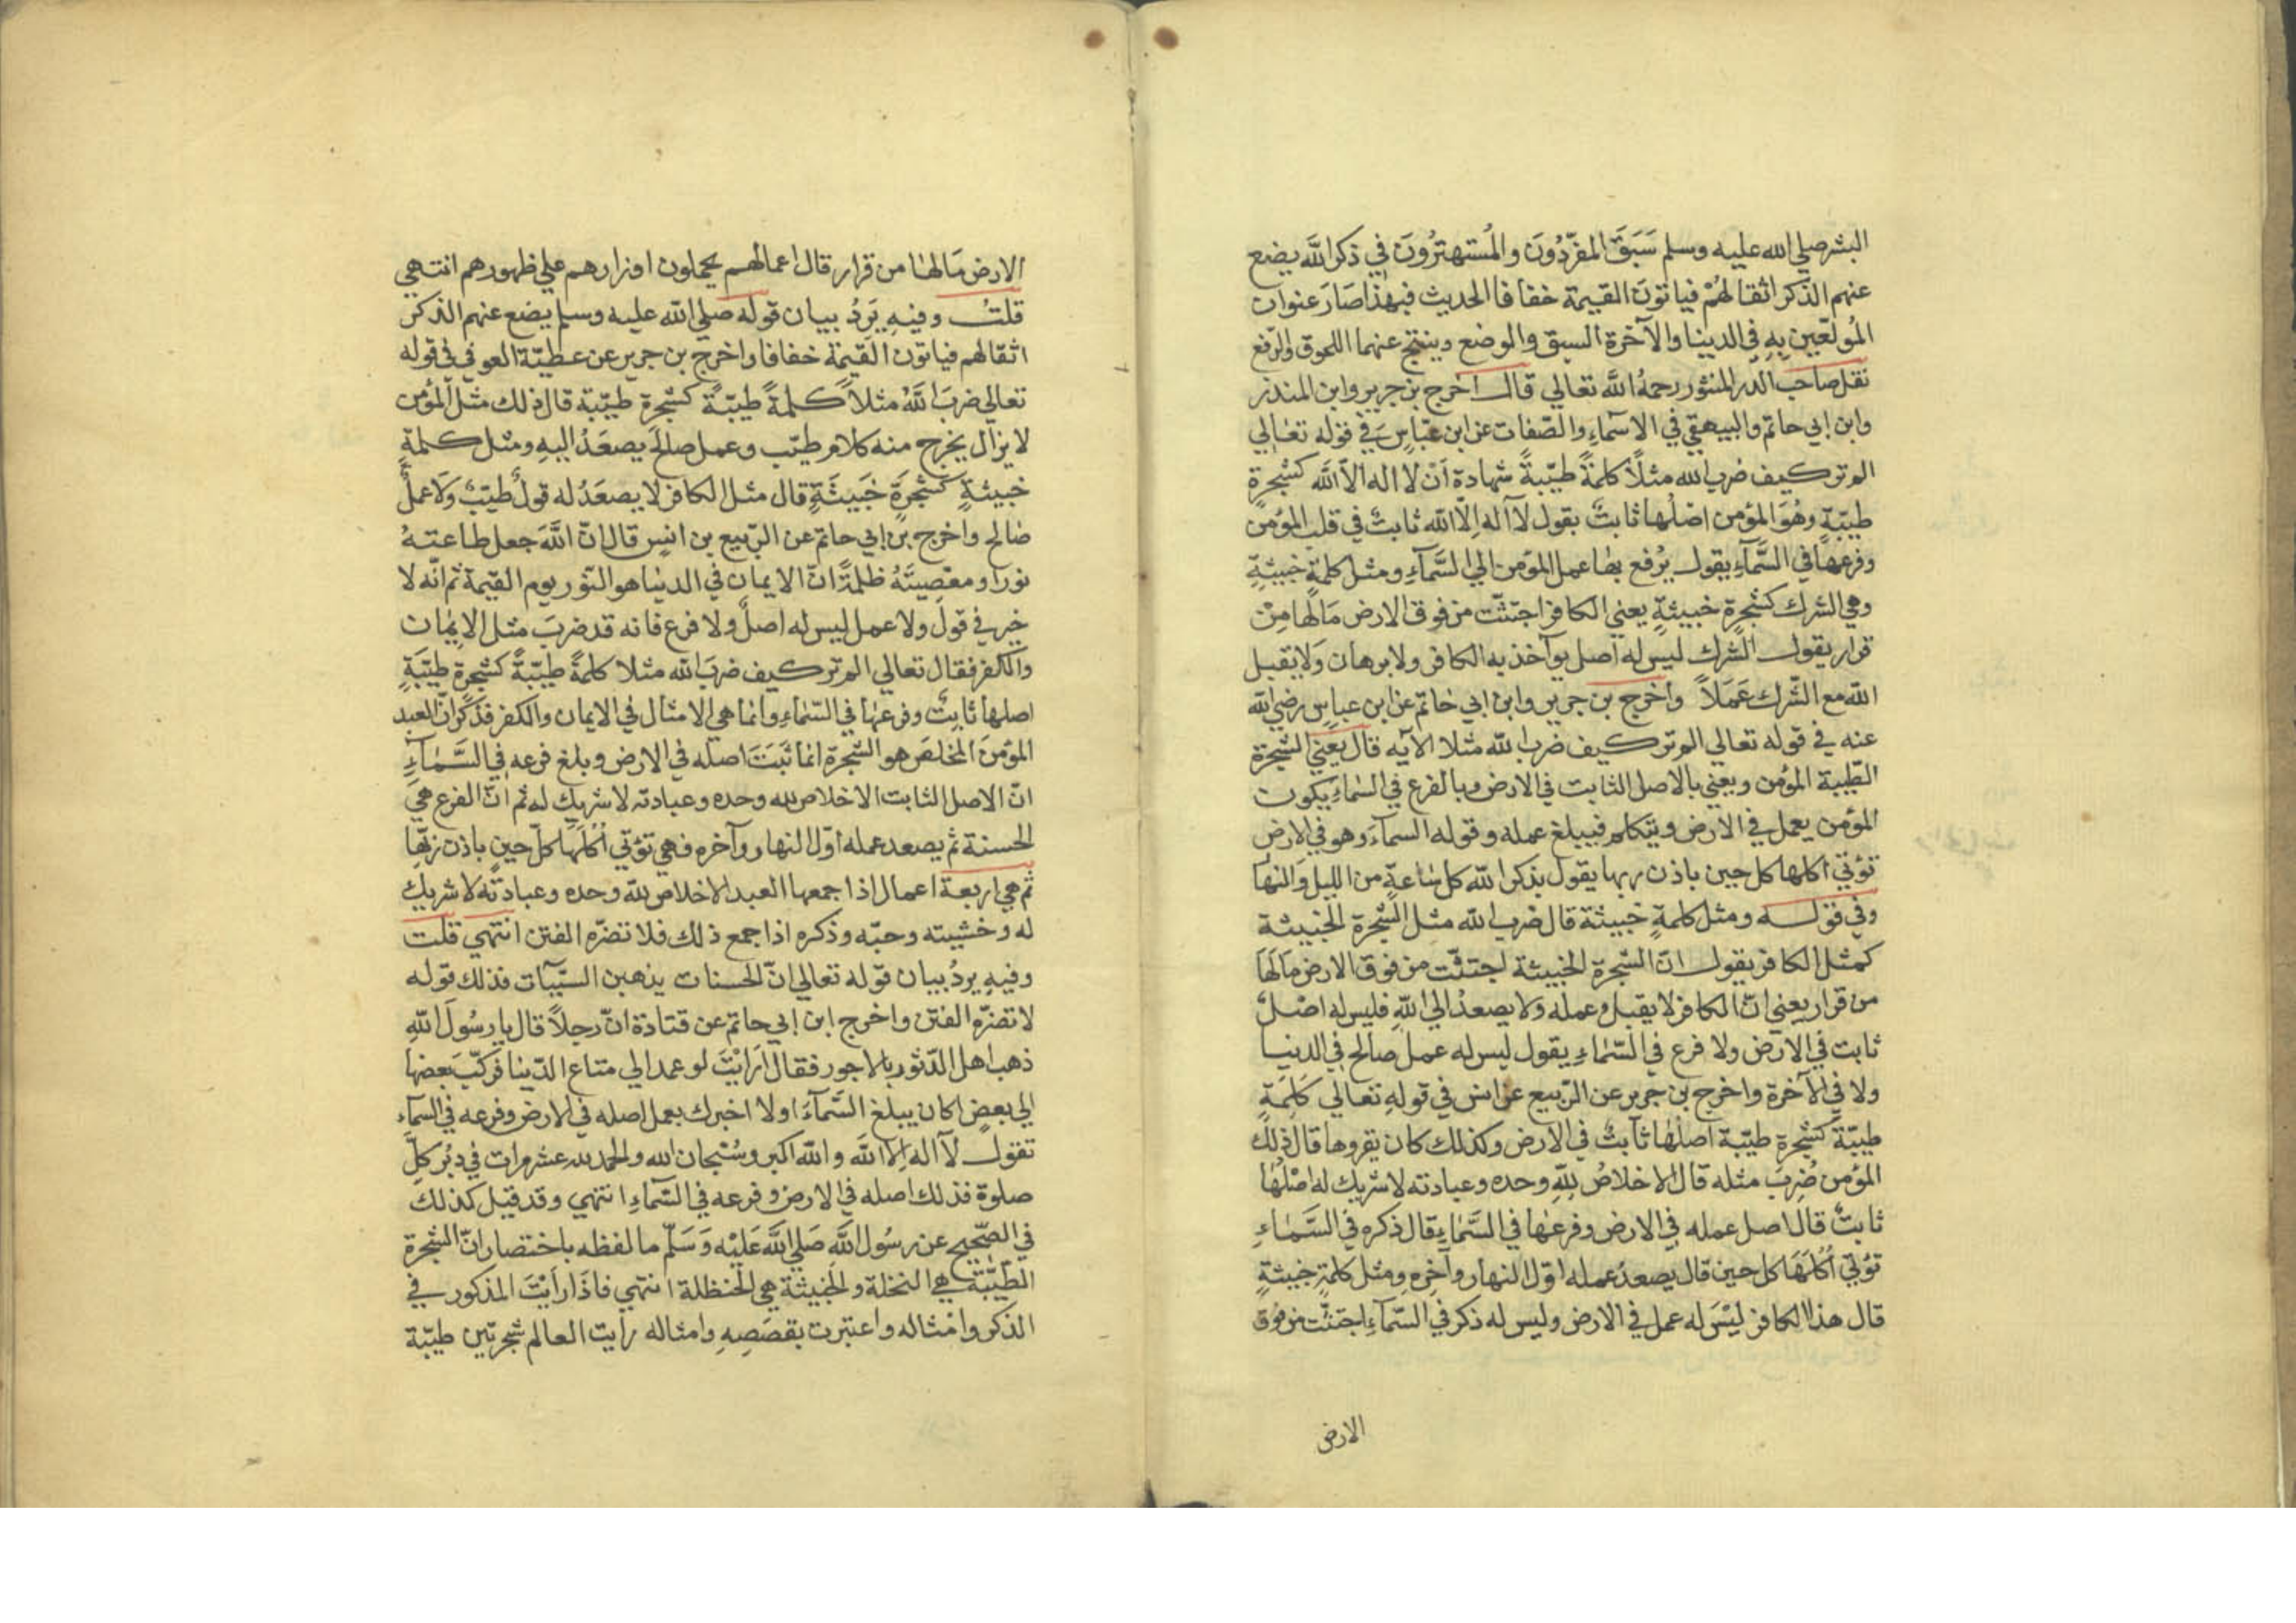 البشر صلي الله عليه وسلم سَبَقَ المفَرّدُونَ والمُستهترُونَ في ذكر اللَّه يضع
عنهم الذّكر اثقالهُمْ فياتونَ القيمة خفافا الحديث فبهذا صَارَ عنوان
المُولعّين بِهِ في الدينا والآخرة السبق والموضع وينتج عنهما اللحوق والرّفع
نقل صاحب الدر المنثور رحمهُ اللَّه تعالي قال اخرج بن جرير وابن المنذر
وابن ابي حاتم والبيهقي في الاسمآءِ والصّفات عن ابن عبّاسٍ في قوله تعالي
الم تركيف ضرب الله مثلًا كلمةً طيّبةً شهادة اَنْ لا اله الّا اللَّه كشجرةٍ
طيبّةٍ وهُوَ المؤمن اصْلُها ثابتٌ بقول لآ اله اِلّا اللّه ثابتٌ في قلب المؤمن
وفرعها في السَّمآءِ يقول يُرْفع بها عمل المؤمن الي السَّمآءِ ومثل كلمةٍ خبيثةٍ
وهي الشرك كشجرةٍ خبيثةٍ يعني الكافر اجتثّت من فوق الارض مَالهَا مِنْ
قرار يقول الشرك ليس له اصل يوآخذ به الكافر ولا برهان وَلا يقبل
اللّه مع الشّرك عَمَلاً واخرج بن جرير وابن ابي حاتم عن ابن عباسٍ رضي اللّه
عنه في قوله تعالي الم تركيف ضرب اللّه مثلا الآيه قال يعني الشجرة
الطّيبة المؤمن ويعني بالاصل الثابت في الارض وبالفرع في السَّماءِ يكون
المؤمن يعمل في الارض ويتكلم فيبلغ عمله وقوله السمآءَ وهو في الارض
تؤتي اكلها كل حين باذن ربها يقول يذكر اللّه كل ساعةٍ من الليل وَالنها
وفي قوله ومثل كلمةٍ خبيثة قال ضرب اللّه مثل الشجرة الخبيثة
كمثل الكافر يقول انّ الشجرة الخبيثة اجتثّت من فوق الارض مَا لَهَا
من قرار يعني انّ الكافر لا يقبل وعمله ولا يصعدُ الي اللّهِ فليس له اصْلٌ
ثابت في الارض ولا فرع في السَّماءِ يقول ليس له عمل صالح في الدنيا
ولا في الآخرة واخرج بن جرير عن الرّبيع عن انس في قولهِ تعالي كَلِمَةٍ
طيبّةً كشجرة طيّبة اصلها ثابتٌ في الارض وكذلك كان يقروها قال ذلك
المؤمن ضُرِبَ مثله قال الاخلاصُ للّهِ وحده وعبادته لا شريك له اصْلُهَا
ثابتٌ قال اصل عمله في الارض وفرعها في السَّماءِ قال ذكره في السَّمَاءِ
تؤتي اُكُلَهَا كل حين قال يصعدُ عمله اوّل النهار وآخِرهِ ومثل كلمةٍ خبيثةٍ
قال هذا الكافر ليْسَ له عمل في الارض وليس له ذكر في السّمآءِ اجتثّت من فوق
الارض
الارض مَالها من قرار قال اعمالهم يحملون اوزارهم علي ظهورهم انتهي
قلتُ وفيهِ يَرِدُ بيان قوله صلي اللّه عليه وسلم يضع عنهم الذكر
اثقالهم فياتون القيمة خفافا واخرج بن جرير عن عطيّة العوفي في قوله
تعالي ضربَ اللَّهُ مثلاً كلمةً طيّبّةً كشجرة طيّبّة قال ذلك مثل المؤمن
لا يزال يخرج منه كلام طيّب وعمل صالح يصعَدُ اليهِ ومثل كلمةٍ
خبيثةٍ كشجرةٍ خَبيثَةٍ قال مثل الكافر لا يصعَدُ له قولٌ طيّبٌ وَلَا عملٌ
صالح واخرج بن ابي حاتم عن الرّبيع بن انسٍ قال انّ اللَّهَ جعل طاعتهُ
نورًا ومعْصِيتَهُ ظلمةً انّ الايمان في الدنيا هو النّور يوم القيمة ثم انّه لا
خير في قول ولا عمل ليس له اصلٌ ولا فرع فانه قد ضربَ مثل الايمان
والكفر فقال تعالي الم تركيف ضرَبَ اللّه مثلا كلمةً طيبّةً كشجرةٍ طيّبَةٍ
اصلها ثابتٌ وفرعها في السّماءِ وانما هي الامثال في الايمان والكفر فذكر انّ العبد
المؤمنَ المخلصَ هو الشّجرة انما ثَبَتَ اصله في الارض وبلغ فرعه في السَّمَآءِ
انّ الاصل الثابت الاخلاص لله وحده وعبادته لا شريك له ثم انّ الفرع هي
الحسنة ثم يصعد عمله اوّل النهار وآخره فهي تؤتي اُكُلَهَا كلّ حينٍ باذن ربّها
ثم هي اربعة اعمال اذا جمعها العبد الاخلاص للّه وحده وعبادتُه لا شريك
له وخشيته وحبّه وذكره اذا جمع ذلك فلا تضرّه الفتن انتهي قلت
وفيهِ يردُ بيان قوله تعالي انّ الحسنات يذهبن السّيآت فذلك قوله
لا تضرّه الفتن واخرج ابن ابي حاتم عن قتادة انّ رجلاً قال يا رسُولَ اللّهِ
ذهب اهل الدّثور بالاجور فقال اَرَايْتَ لو عمد الي متاع الدّنيا فركّبَ بعضها
الي بعضٍ اكان يبلغ السَّمآءَ اولا اخبرك بعمل اصله في الارض وفرعه في السمآء
تقول لآ اله اِلا اللَّه واللّه اكبر وسُبْحان الله والحمد لله عشر مرات في دُبُرِ كلّ
صلوة فذلك اصله في الارض وفرعه في السّماءِ انتهي وقد قيل كذلك
في الصّحيح عن رسُول اللَّه صَلي اللَّه عَليْه وَسَلّم ما لفظه باختصار انّ الشجرة
الطّيّبّة هي النخلة والخبيثة هي الحنظلة انتهي فاذا رأيْتَ المذكور في
الذكر وامْثاله واعتبرت بقصَصِهِ وامثاله رأيت العالم شجرتين طيّبّة